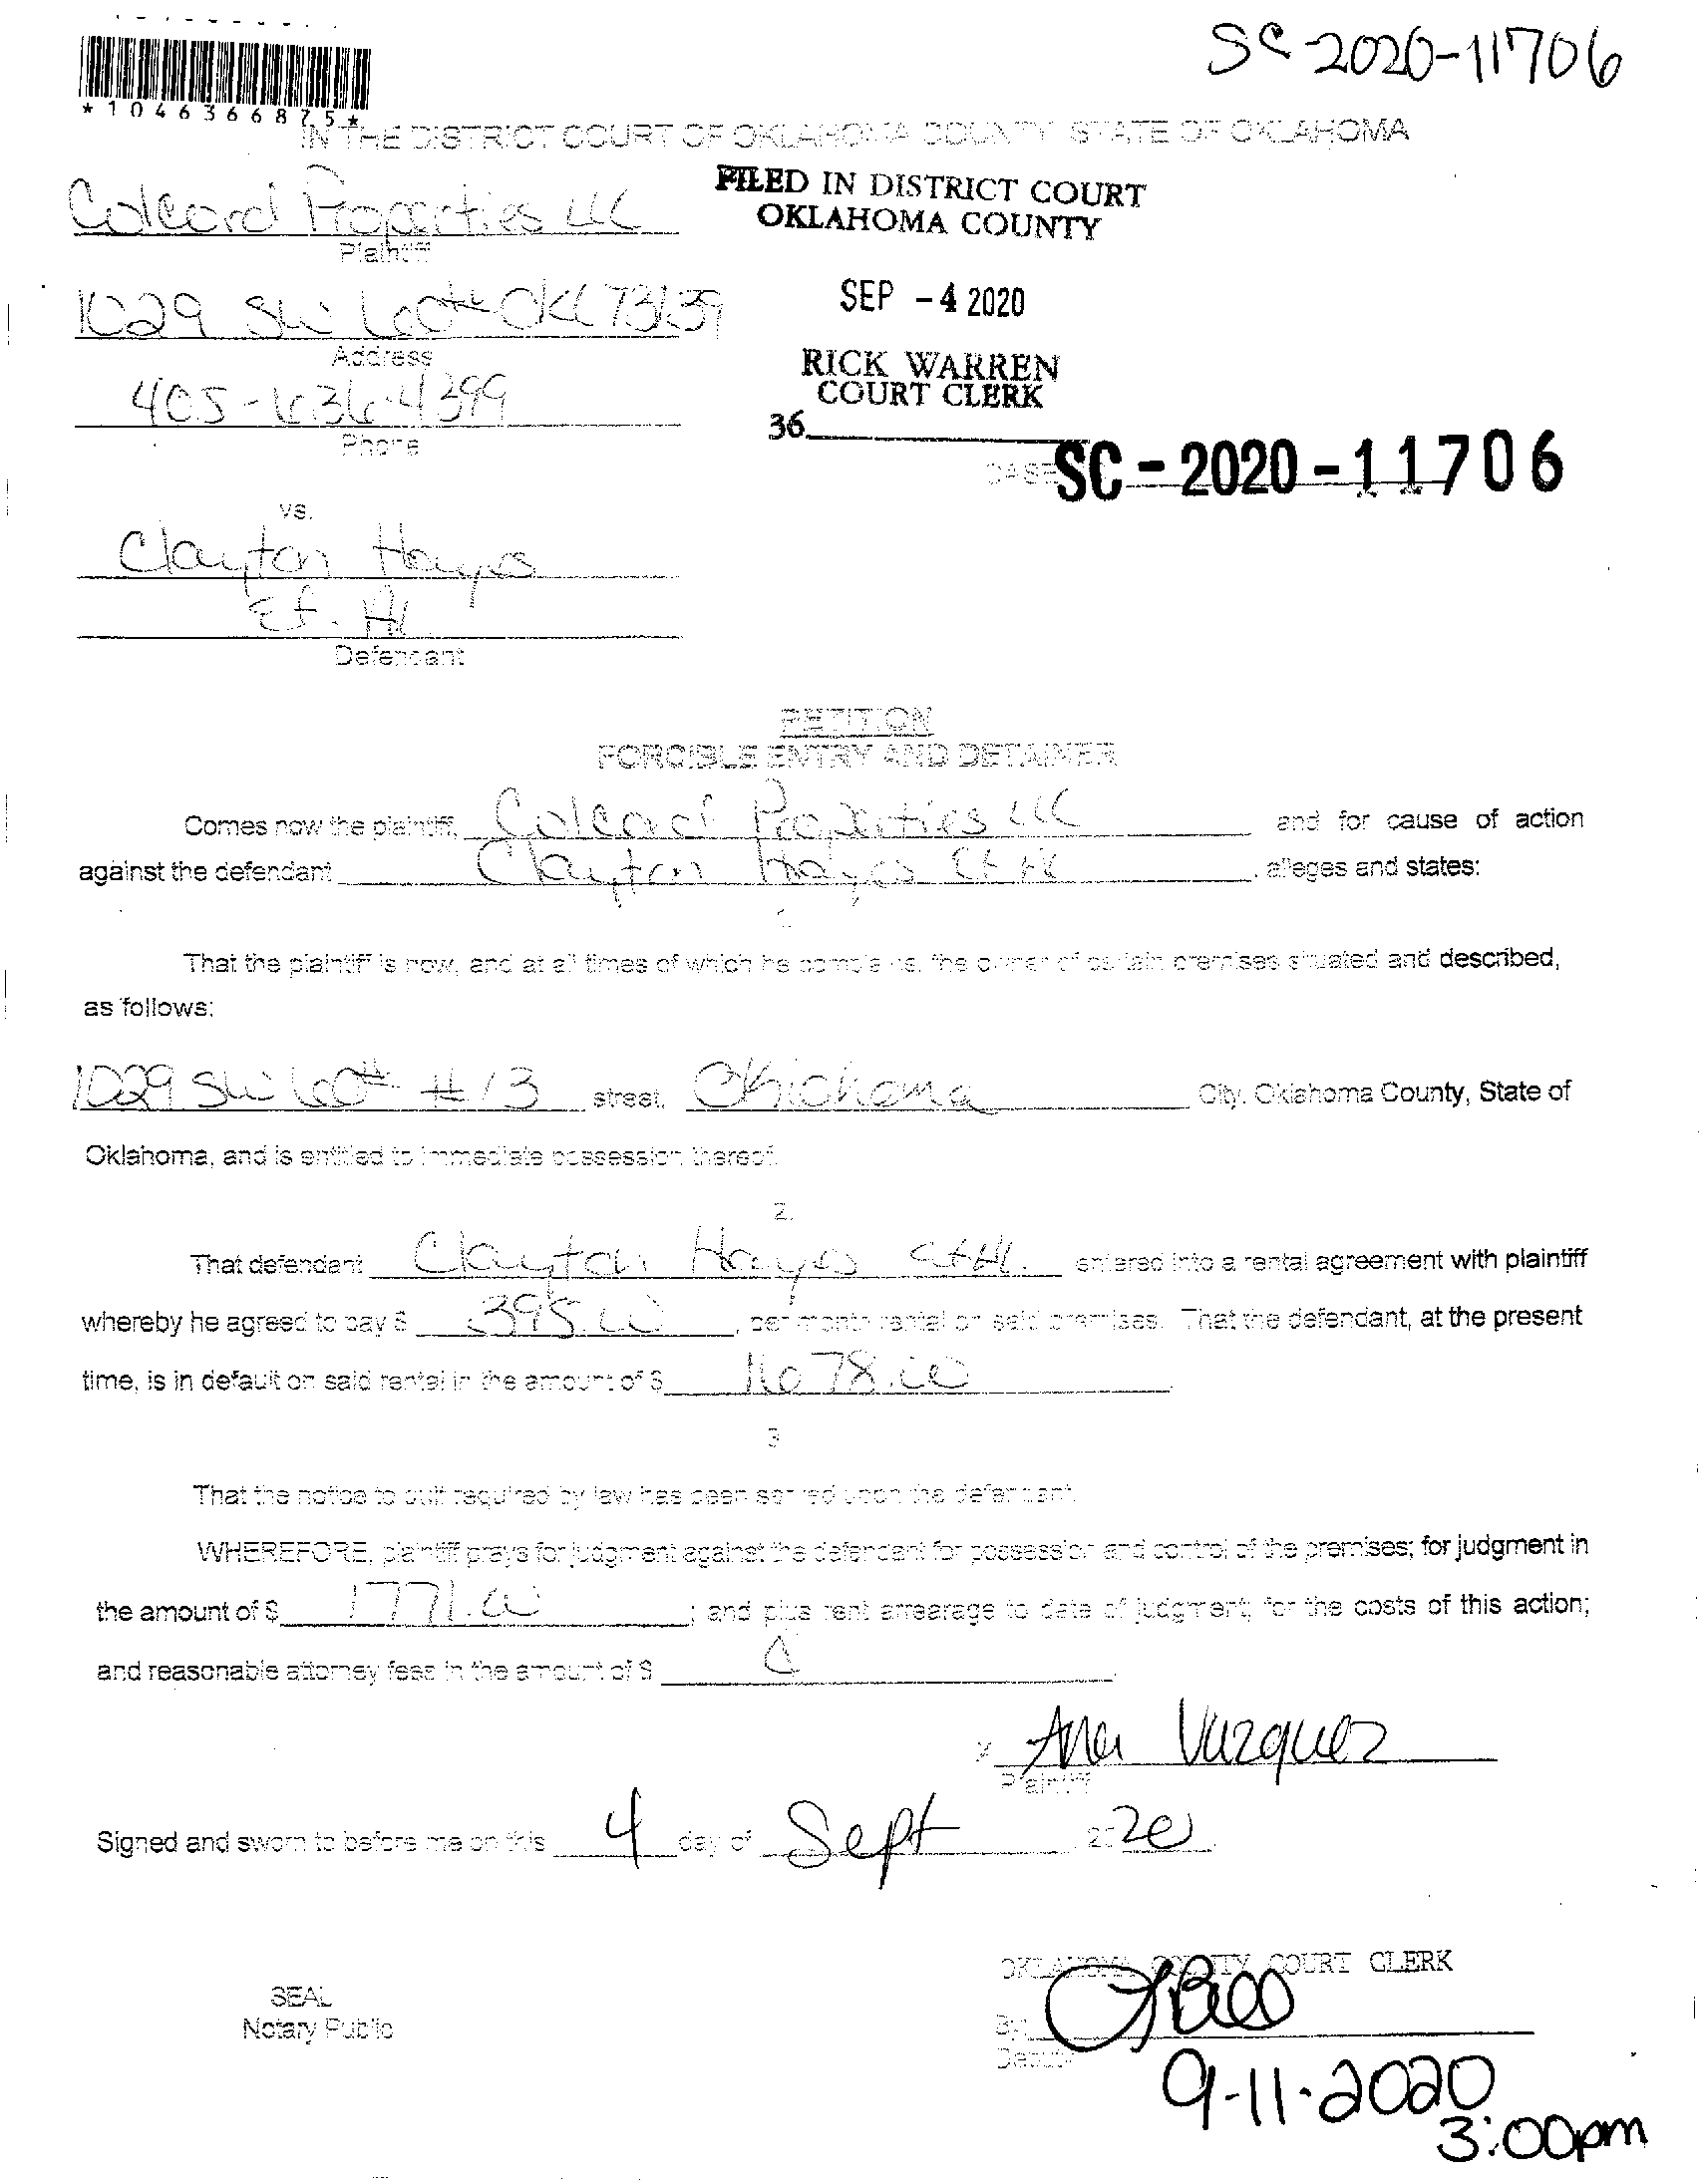 SC-2020-11706
*1046366875*
IN THE DISTRICT COURT OF OKLAHOMA COUNTY STATE OF OKLAHOMA
Colcord Properties LLC
Plaintiff
FILED IN DISTRICT COURT
OKLAHOMA COUNTY
1029 SW 60th OKC 73139
Address
SEP -4 2020
405-636-4399
Phone
RICK WARREN
COURT CLERK
36
CASE SC-2020-11706
vs.
Clayton Hayes
Et. Al
Defendant
PETITION
FORCIBLE ENTRY AND DETAINER
Comes now the plaintiff, Colcord Properties LLC and for cause of action
against the defendant Clayton Hayes Et Al, alleges and states:
That the plaintiff is now, and at all times of which he complains, the owner of certain premises situated and described,
as follows:
1029 SW 60th #13 street, Oklahoma City, Oklahoma County, State of
Oklahoma, and is entitled to immediate possession thereof.
2.
That defendant Clayton Hayes et Al. entered into a rental agreement with plaintiff
whereby he agreed to pay $ 395.00, per month rental on said premises. That the defendant, at the present
time, is in default on said rental in the amount of $ 1678.00
3
That the notice to quit required by law has been served upon the defendant.
WHEREFORE, plaintiff prays for judgment against the defendant for possession and control of the premises; for judgment in
the amount of $ 1771.00; and plus rent arrearage to date of judgment; for the costs of this action;
and reasonable attorney fees in the amount of $
x Ana Vazquez
Plaintiff
Signed and sworn to before me on this 4 day of Sept 2020.
OKLAHOMA COUNTY COURT CLERK
SEAL
Notary Public
By:
Deputy
9-11-2020
3:00pm